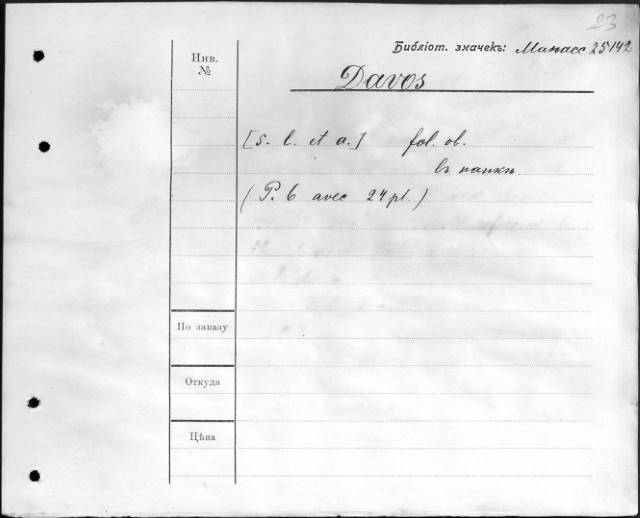 23
Библіот. значекъ: Манасс 25/142
Инв.
№
Davos
[S. l. et a.] fol. ob.
въ папкѣ.
(P. 6 avec 24 pl.)
По заказу
Откуда
Цѣна